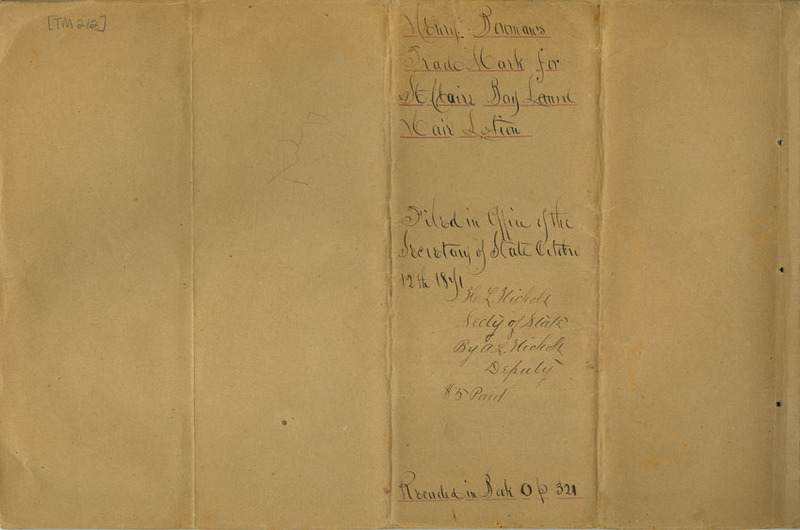 [TM 212]
Henry Bowman's
Trade Mark for
St Clairs Bay Laurel
Hair Lotion
Filed in Office of the
Secretary of State October
12th 1871
H. L. Nichols
Secty of State
By A. L. Nichols
Deputy
$5 Paid
Recorded in Book O p 321